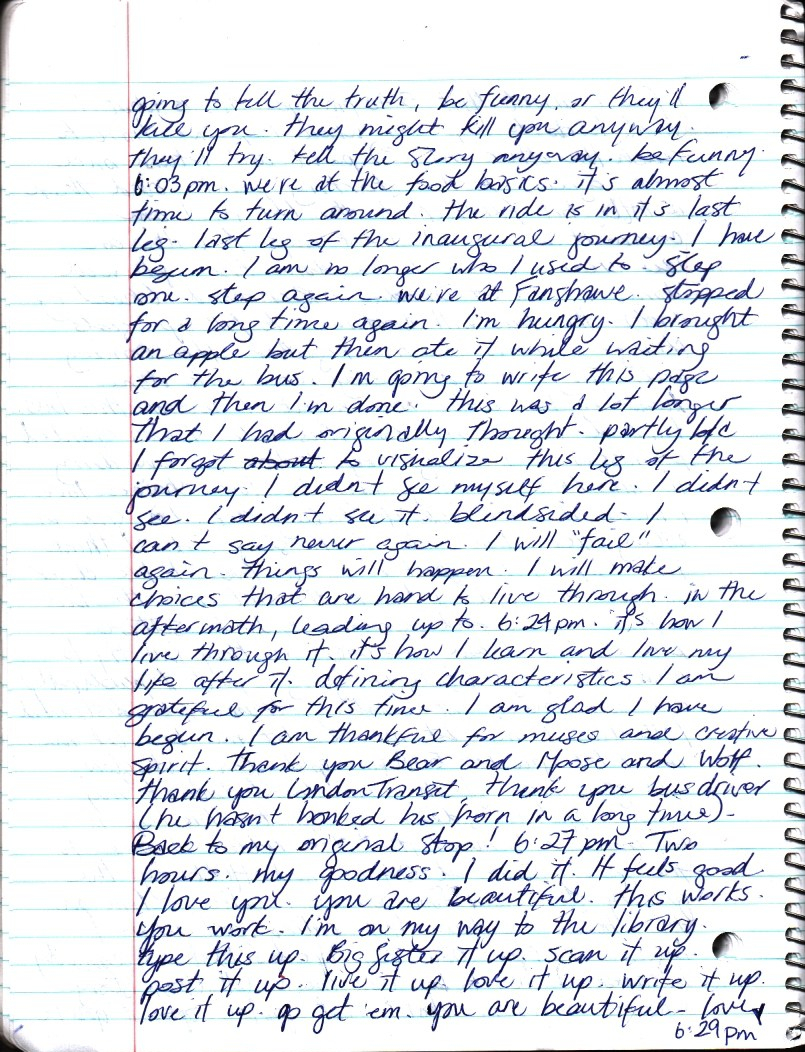 going to tell the truth, be funny, or they'll
kill you. they might kill you anyway.
they'll try. tell the story anyway. be funny.
6:03pm. we're at the food basics. it's almost
time to turn around. the ride is in it's last
leg. last leg of the inaugural journey. I have
begun. I am no longer who I used to. step
one. step again. we're at Fanshawe. stopped
for a long time again. I'm hungry. I brought
an apple but then ate it while waiting
for the bus. I'm going to write this page
and then I'm done. this was a lot longer
that I had originally thought. partly b/c
I forgot about to visualize this leg of the
journey. I didn't see myself here. I didn't
see. I didn't see it. blindsided. I
can't say never again. I will "fail"
again. things will happen. I will make
choices that are hard to live through. in the
aftermath, leading up to. 6:24pm. it's how I
live through it. it's how I learn and live my
life after it. defining characteristics. I am
grateful for this time. I am glad I have
begun. I am thankful for muses and creative
spirit. Thank you Bear and Moose and Wolf.
thank you London Transit, thank you bus driver
(he hasn't honked his horn in a long time).
Back to my original stop! 6:27pm. Two
hours. my goodness. I did it. It feels good.
I love you. you are beautiful. this works.
you work. I'm on my way to the library.
type this up. Big sister it up. scan it up.
post it up. live it up. love it up. write it up.
love it up. go get 'em. you are beautiful - love,
6:29pm